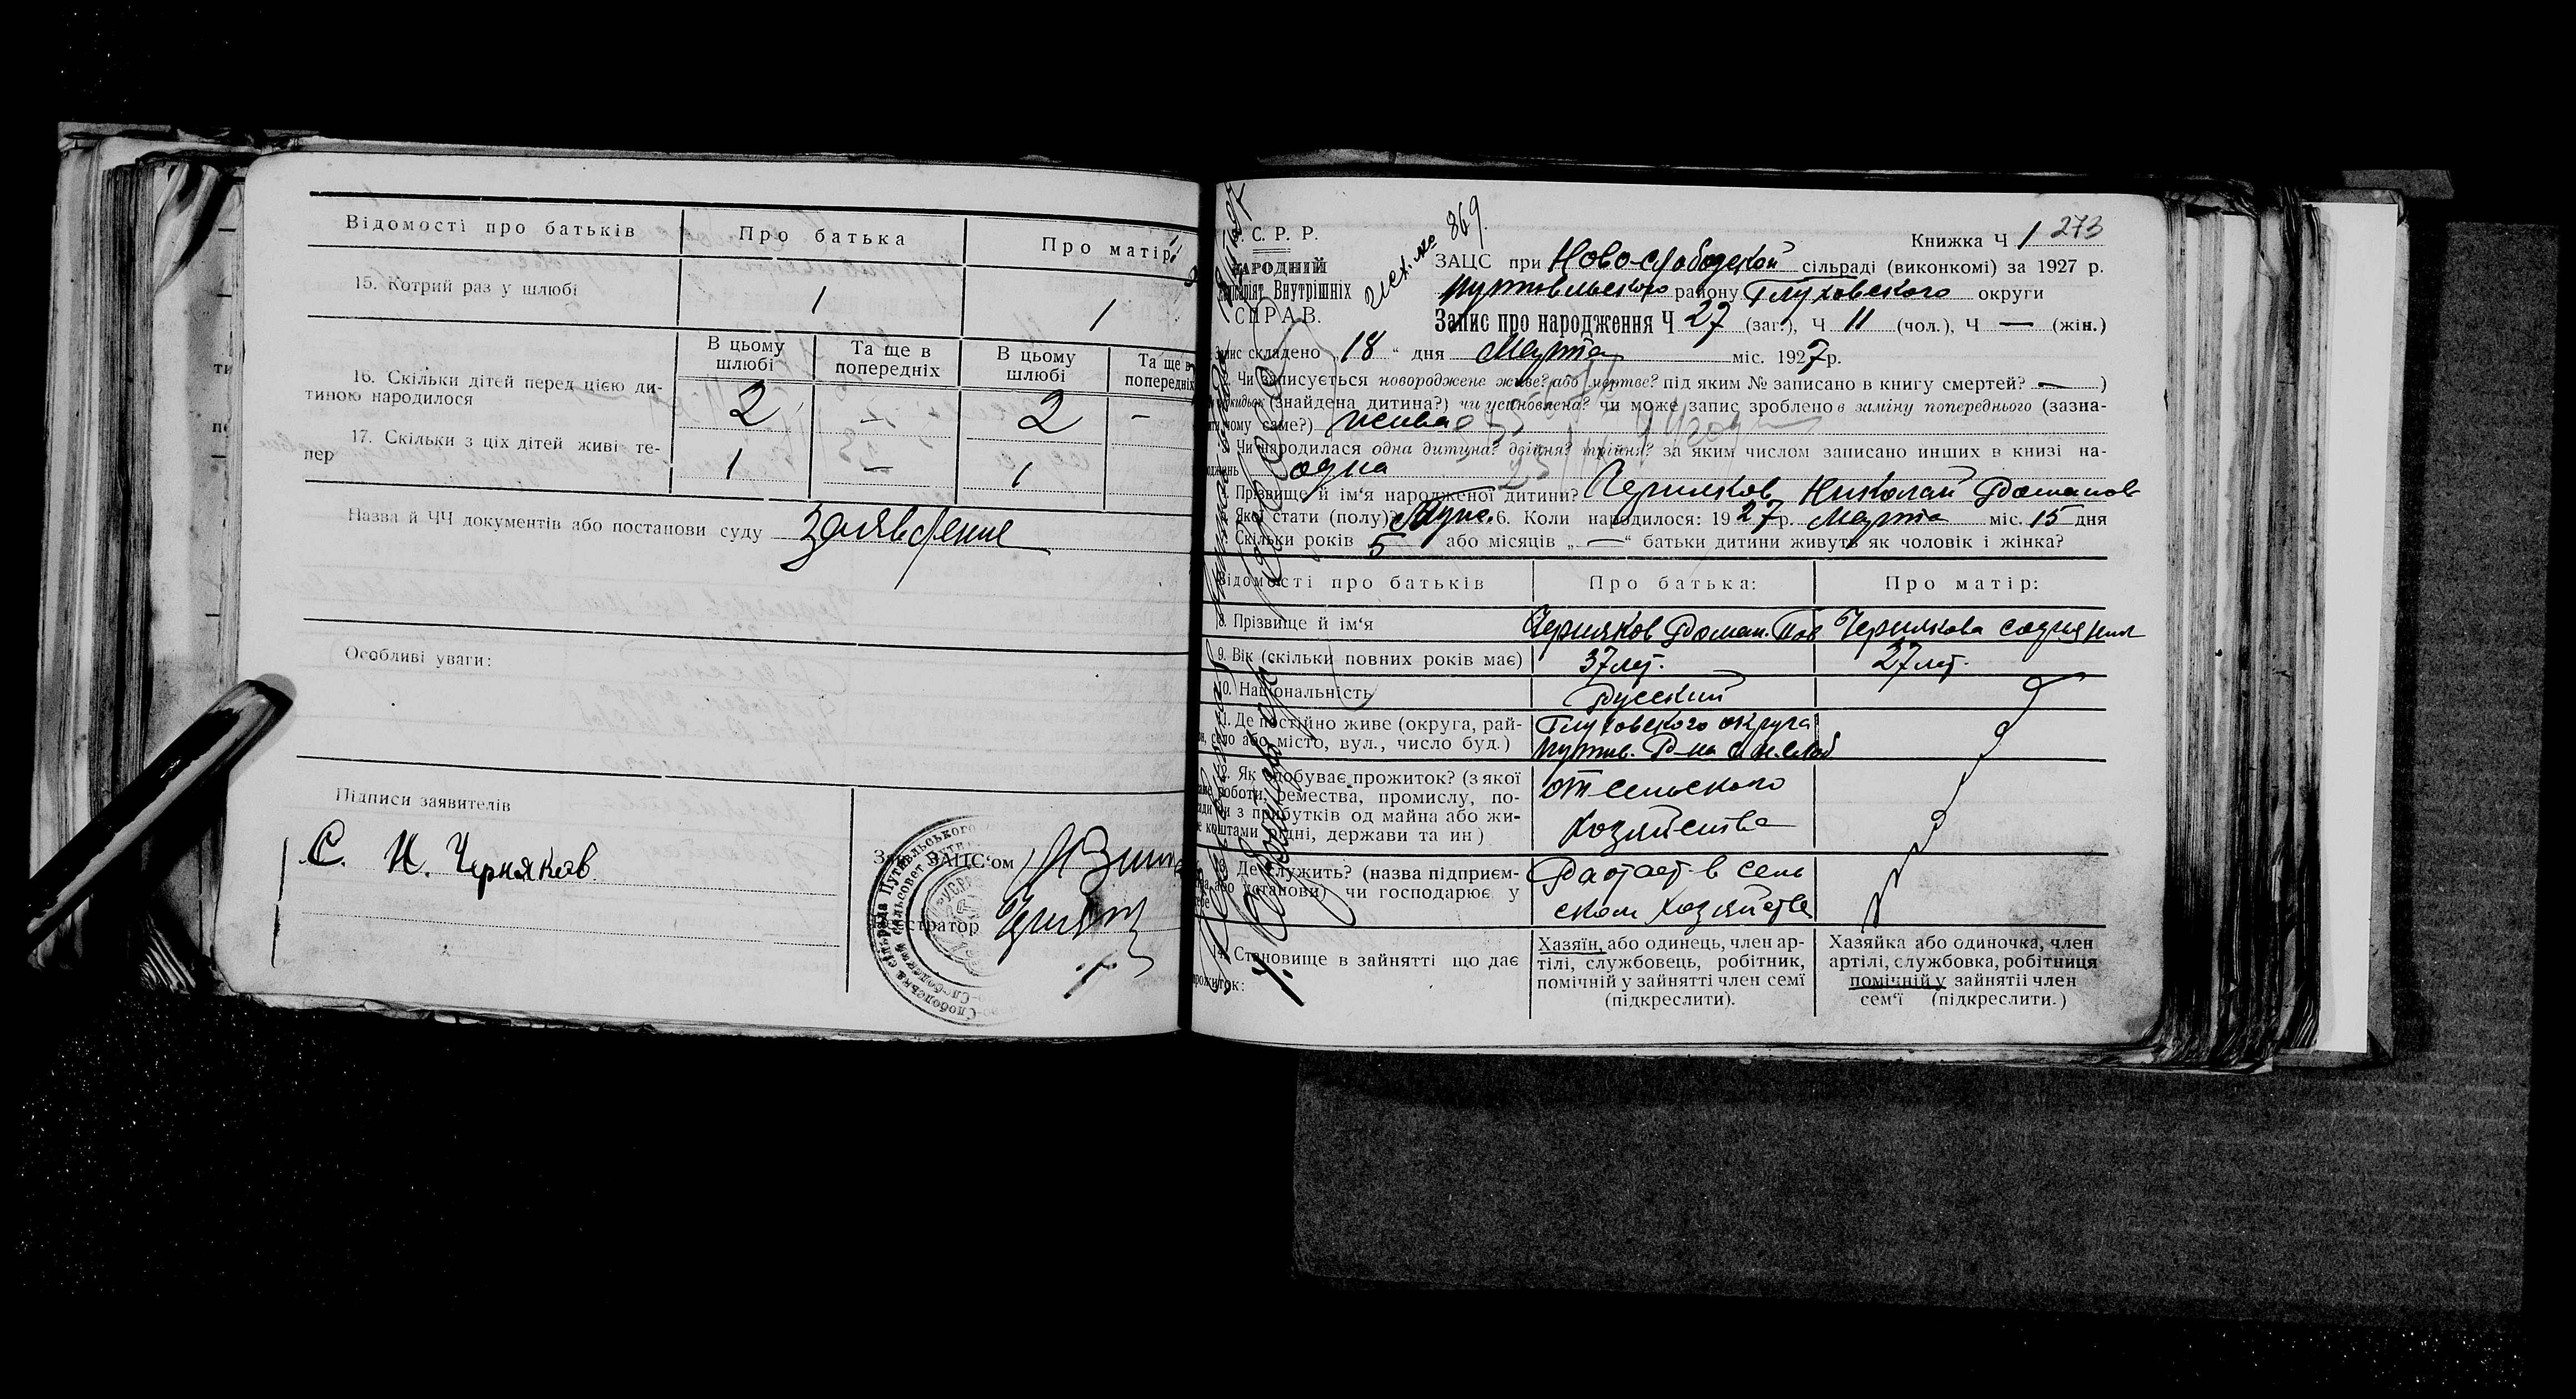 Відомості про батьків
Про батька
Про матір
15. Котрий раз у шлюбі
1
1
В цьому шлюбі
Та ще в попередніх
В цьому шлюбі
Та ще в попередніх
16. Скільки дітей перед цією ди-
тиною народилося
2
—
2
—
17. Скільки з ціх дітей живі те-
пер
1
—
1
Назва й ЧЧ документів або постанови суду заявление
Особливі уваги:
Підписи заявителів
С. Н. Черняков
ЗАЦС'ом
стратор
С. Р. Р.
НАРОДНІЙ
Внутрішніх
СПРАВ.
исх. № 869.
Книжка Ч 1 273
ЗАЦС при Ново-Слободской сільраді (виконкомі) за 1927 р.
Путивльского району Глуховского округи
Запис про народження Ч 27 (заг.), Ч 11 (чол.), Ч — (жін.)
Запис складено „18“ дня Марта міс. 1927 р.
Чи записується новороджене живе? або мертве? під яким № записано в книгу смертей? — )
(знайдена дитина?) чи усиновлена? чи може запис зроблено в заміну попереднього (зазна-
чому саме?) живая
Чи народилася одна дитина? двійня? трійня? за яким числом записано инших в книзі на-
одна
Прізвище й ім'я народженої дитини? Черняков Николай Романов
Якої стати (полу)? Муж. 6. Коли народилося: 1927 р. Марта міс. 15 дня
Скільки років 5 або місяців „—“ батьки дитини живуть як чоловік і жінка?
Відомості про батьків
Про батька:
Про матір:
8. Прізвище й ім'я
Черняков Роман. Пав
Чернякова София Ник
9. Вік (скільки повних років має)
37 лет.
27 лет.
10. Національність
Русский
11. Де постійно живе (округа, рай-
он, село або місто, вул., число буд.)
Глуховского округа
Путив. Р-на с. Н. Слоб
12. Як здобуває прожиток? (з якої
роботи, ремества, промислу, по-
з прибутків од майна або жи-
коштами рідні, держави та ин )
от сельского
хозяйства
13. Де служить? (назва підприєм-
або установи) чи господарює у
Работает в сель
ском хозяйстве
14. Становище в зайнятті що дає
прожиток:
Хазяїн, або одинець, член ар-
тілі, службовець, робітник,
помічній у зайнятті член семї
(підкреслити).
Хазяйка або одиночка, член
артілі, службовка, робітниця
помічній у зайнятії член
сем'ї (підкреслити.)